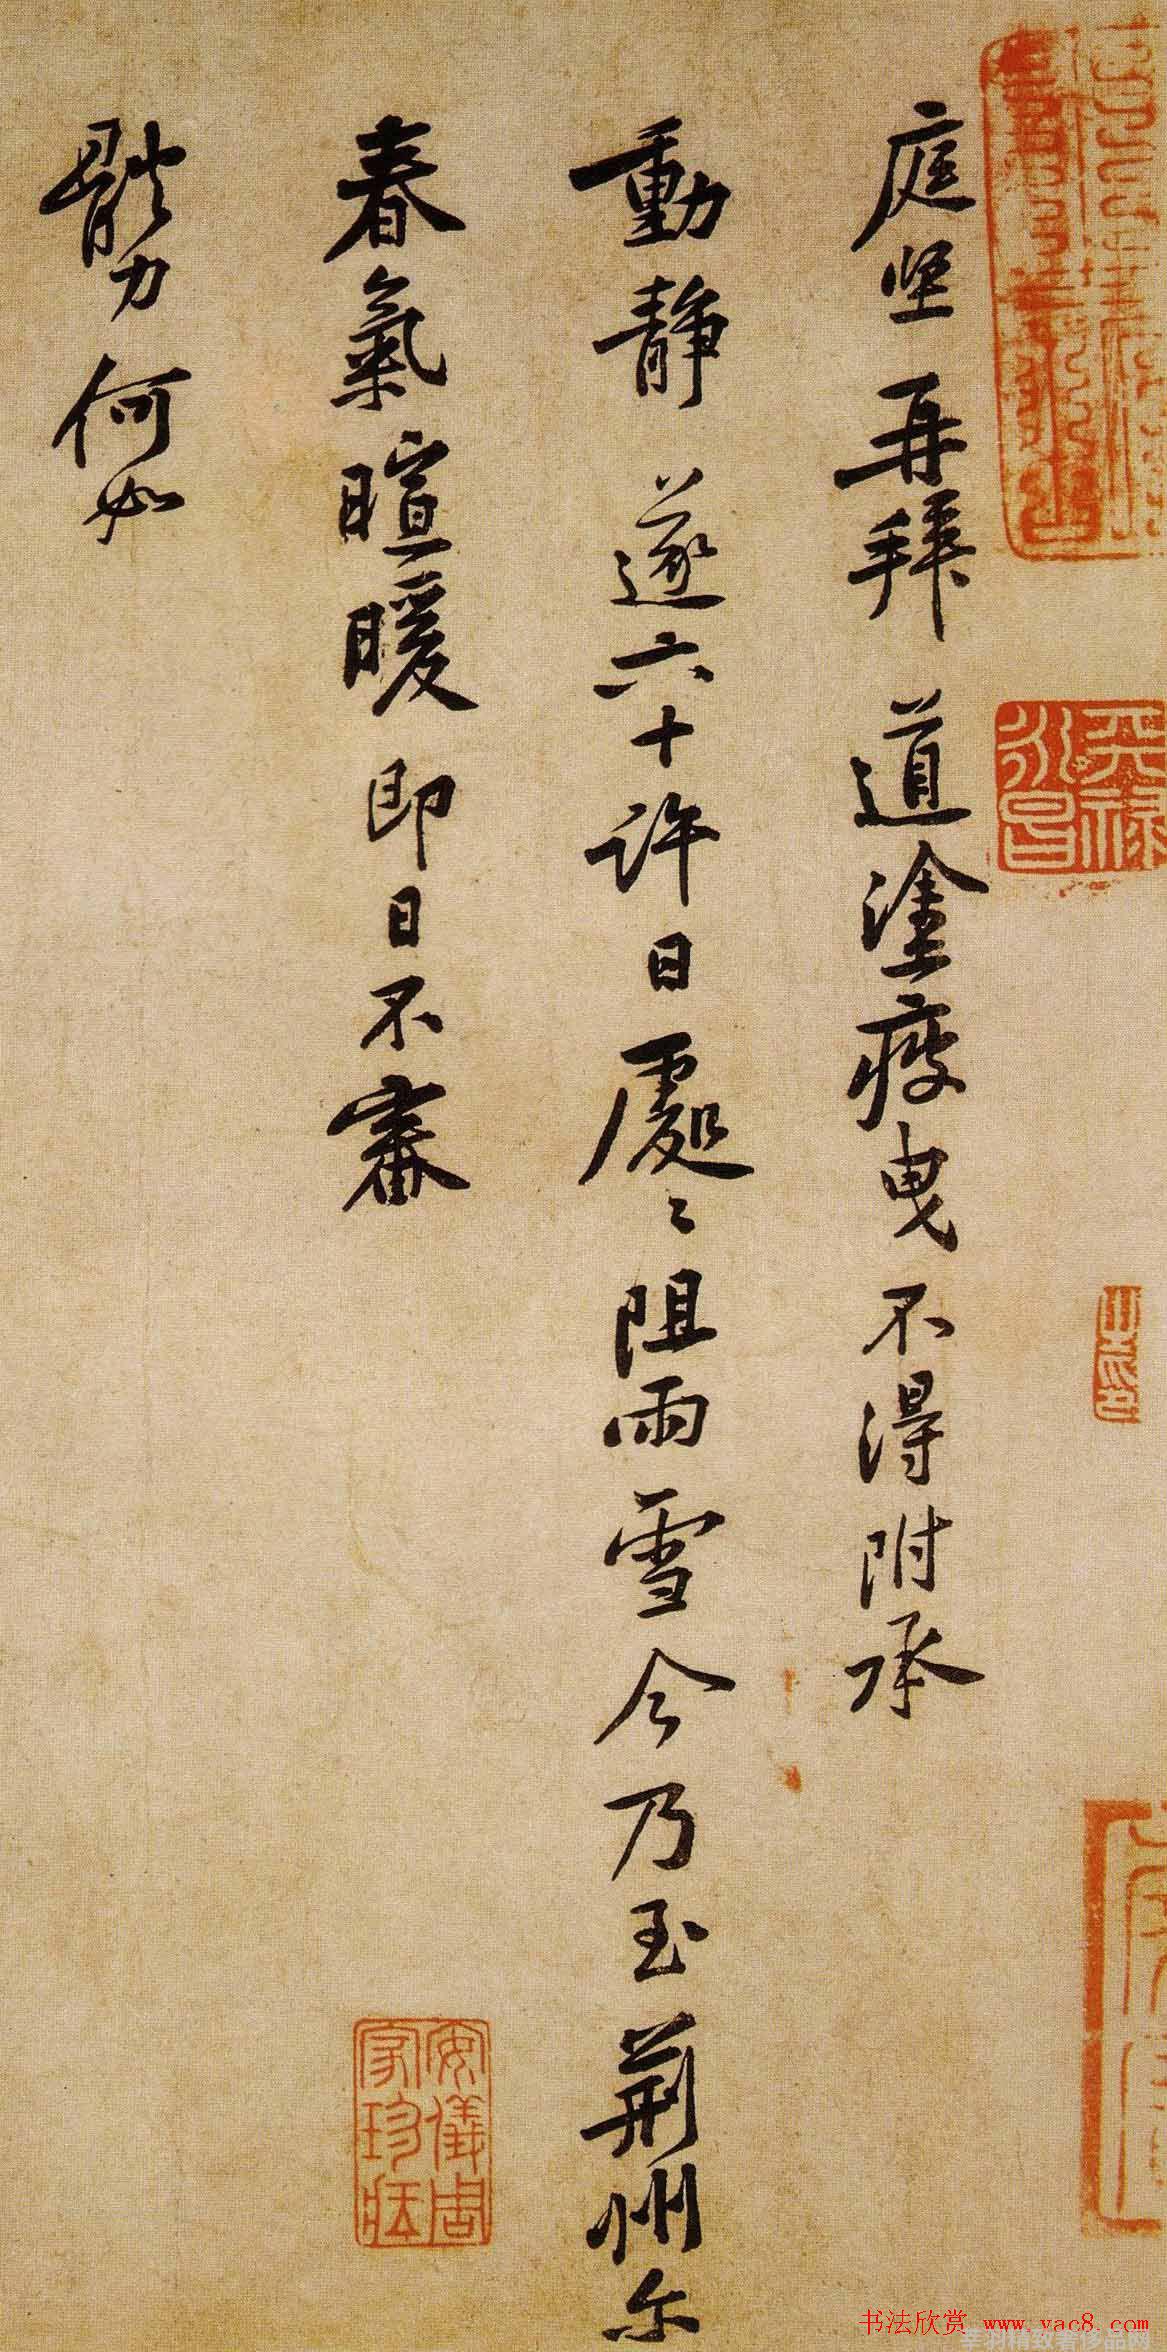 庭坚再拜道塗疲曳不得附承
動静遂六十許日處〻阻雨雪今乃至荆州尔
春氣暄暖即日不審
體力何如
天禄永昌
安儀周家珍藏
书法欣赏 www.yac8.com